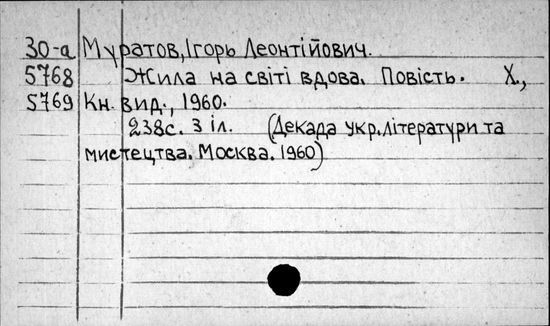 30-а Муратов, Ігорь Леонтійович.
5768 Жила на світі вдова. Повість. Х.,
5769 Кн. вид., 1960.
238с. З іл. (Декада укр. літератури та
мистецтва. Москва. 1960)